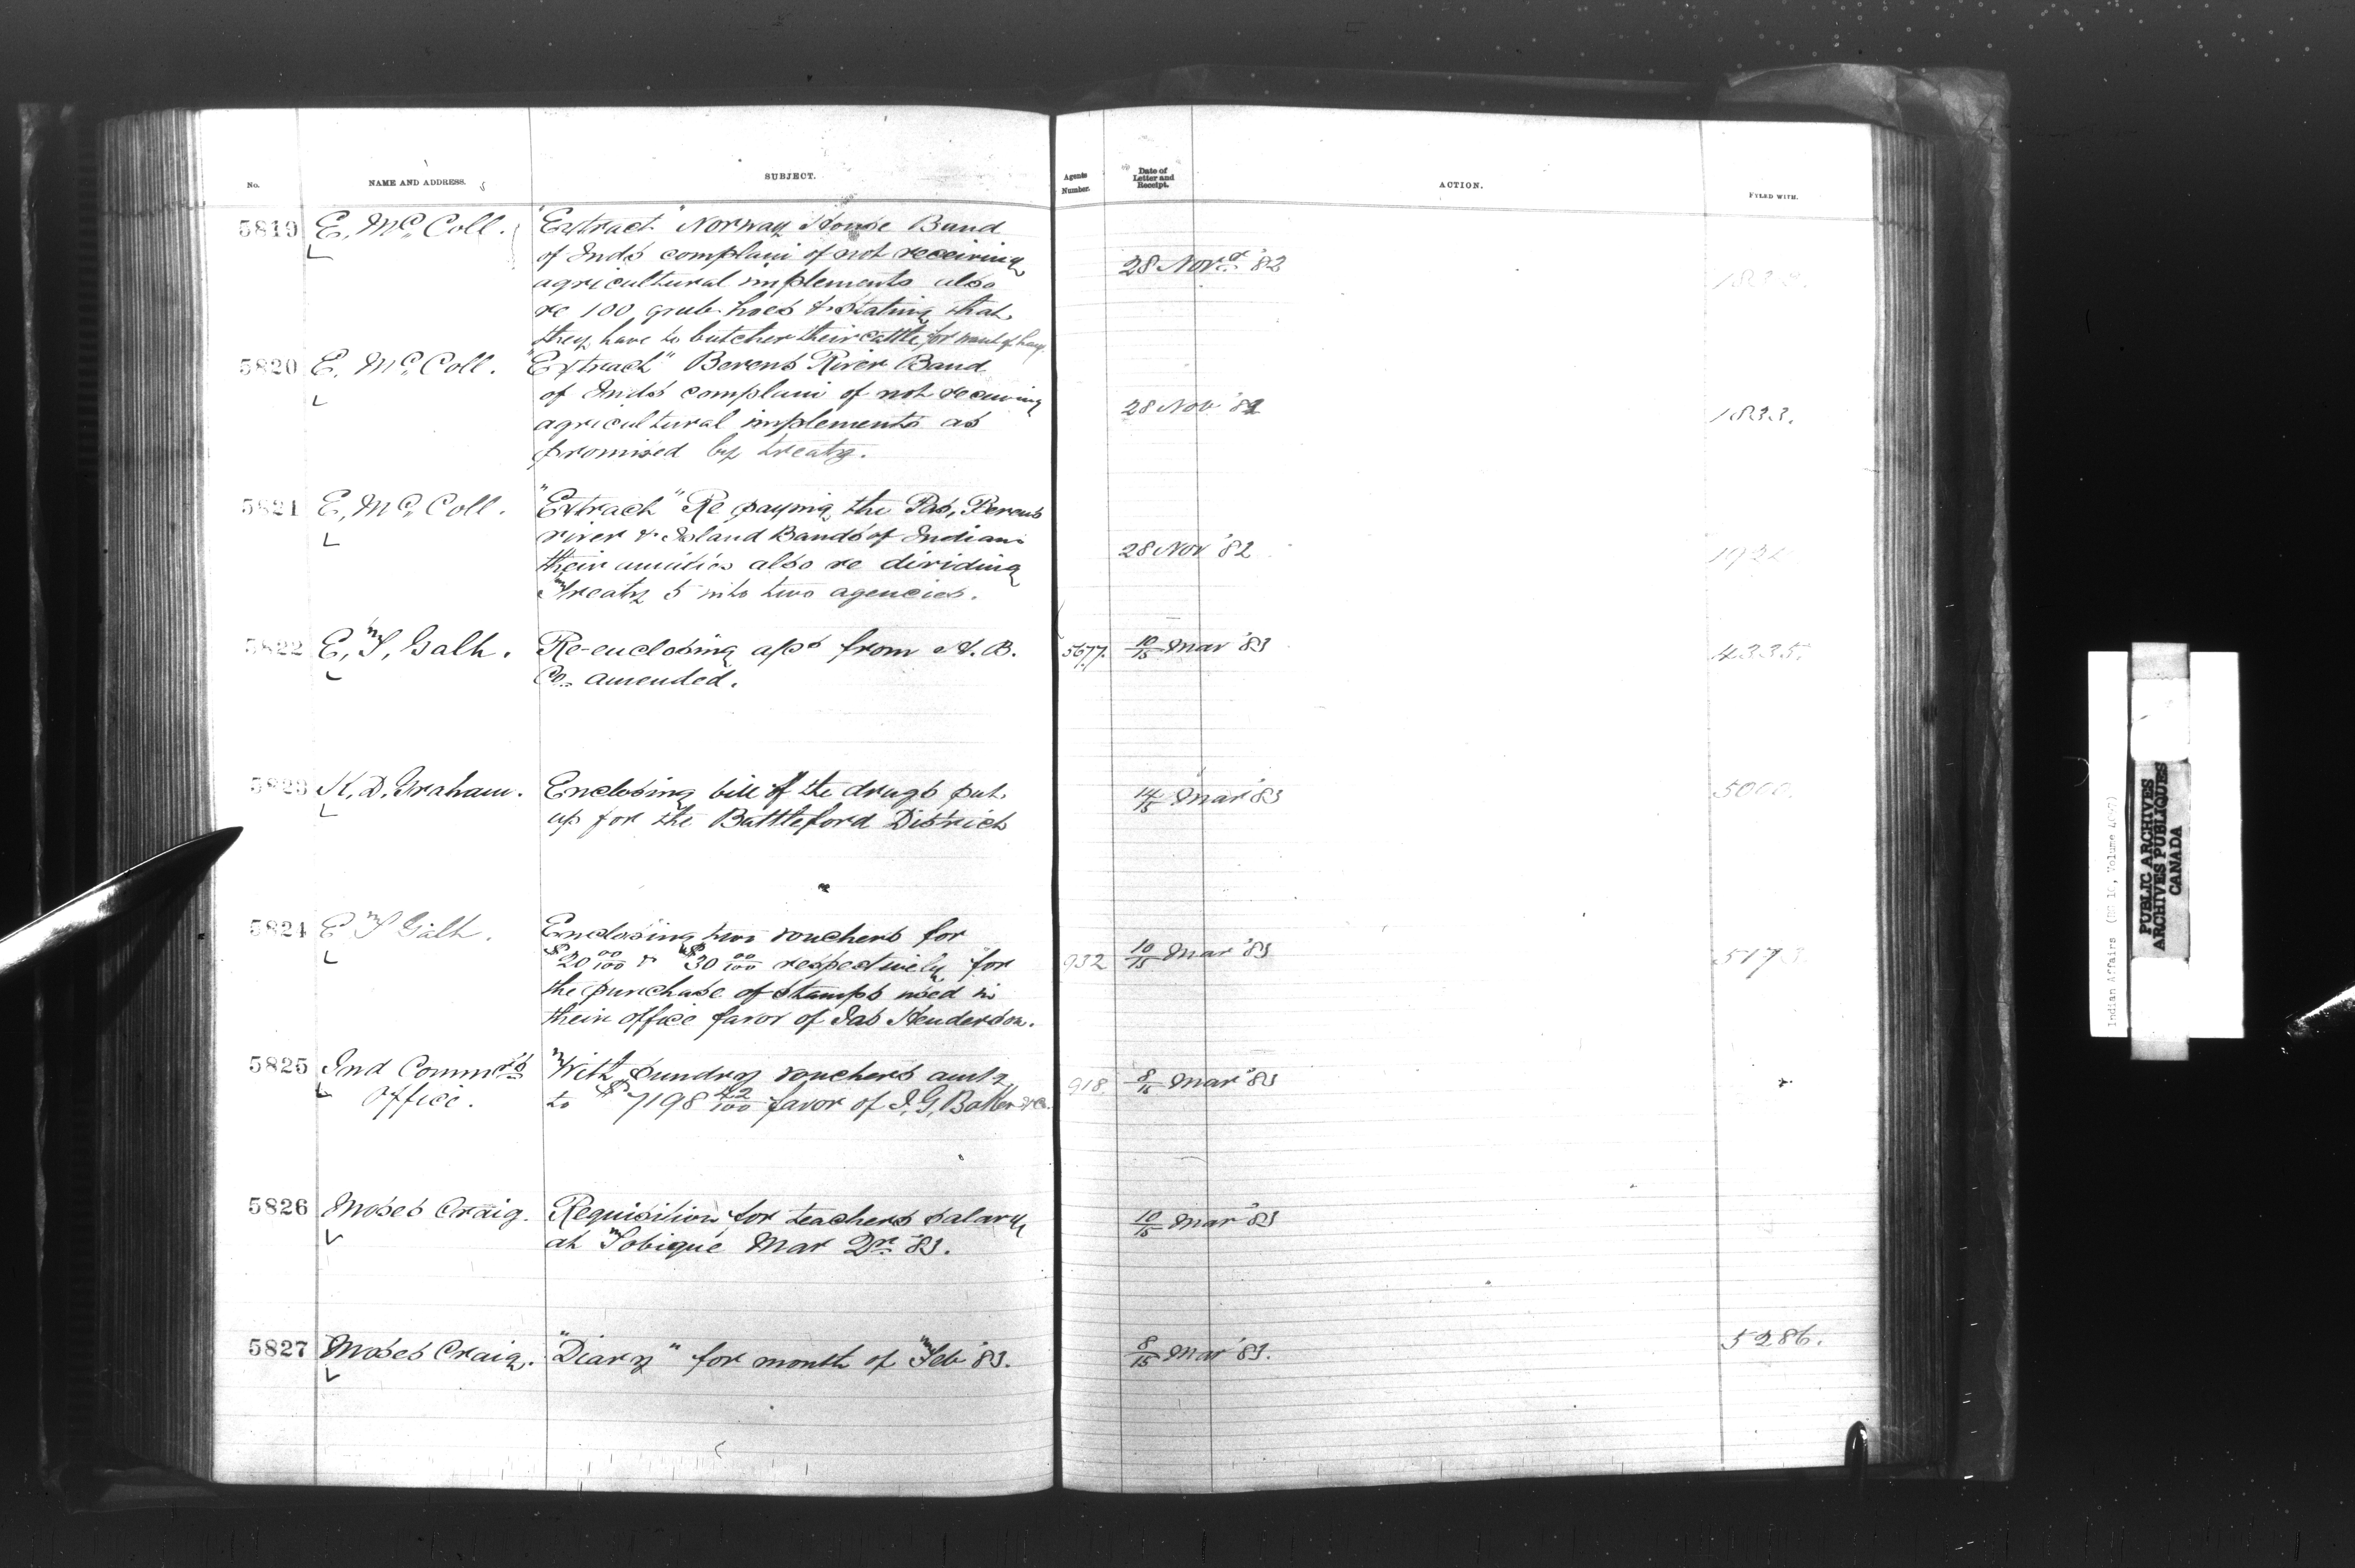 No.
NAME AND ADDRESS.
SUBJECT.
Agents Number.
Date of Letter and Receipt.
ACTION.
FILED WITH.
5819 E. McColl. "Extract" Norway House Band
of Inds complain of not receiving
agricultural implements also
re 100 grub hoes & stating that
they have to butcher their cattle for want of hay.
28 Nov '82
5820 E. McColl. "Extract" Berens River Band
of Inds complain of not receiving
agricultural implements as
promised by treaty.
28 Nov 82 1833.
5821 E. McColl. "Extract" Re paying the Pas, Berens
river & Island Bands of Indians
their annuities also re dividing
Treaty 5 into two agencies.
28 Nov '82
5822 E. T. Galt. Re-enclosing a/cs from H. B.
Co. amended.
5677. 10/15 Mar '83 4335.
5823 K. D. Graham. Enclosing bill of the drugs put
up for the Battleford District
14/15 Mar '83 5000.
5824 E T Galt. Enclosing two vouchers for
$20 00/100 & $30 00/100 respectively for
the purchase of stamps used in
their office favor of Jas Henderson.
932 10/15 Mar '83 5173
5825 Ind Commrs
Office.
With sundry vouchers amtg
to $7198 42/100 favor of I. G. Baker & Co.
918. 8/15 Mar '83
5826 Moses Craig. Requisition for teachers salary
at Tobique Mar Qr '83.
10/15 Mar '83
5827 Moses Craig. "Diary" for month of Feb '83.
8/15 Mar '83. 5286.
Indian Affairs (RG 10, Volume
PUBLIC ARCHIVES
ARCHIVES PUBLIQUES
CANADA